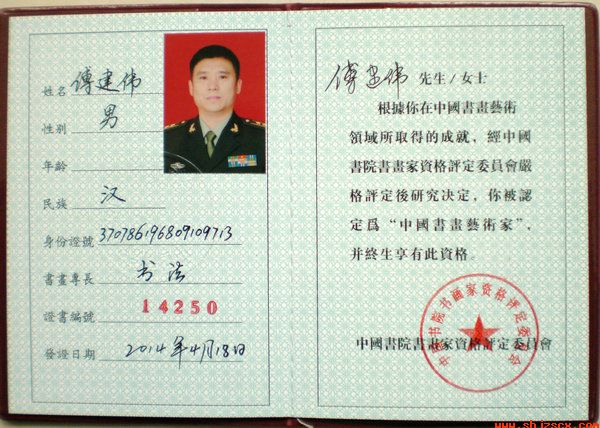 姓名 傅建伟
性别 男
年龄
民族 汉
身份證號 370786196809109713
書畫專長 书法
證書編號 14250
發證日期 2014年4月18日
傅建伟 先生/女士
根據你在中國書畫藝術
領域所取得的成就，經中國
書院書畫家資格評定委員會嚴
格評定後研究決定，你被認
定爲“中國書畫藝術家”，
并終生享有此資格。
中國書院書畫家資格評定委員會
中国书院书画家资格评定委员会
www.shjzscx.com